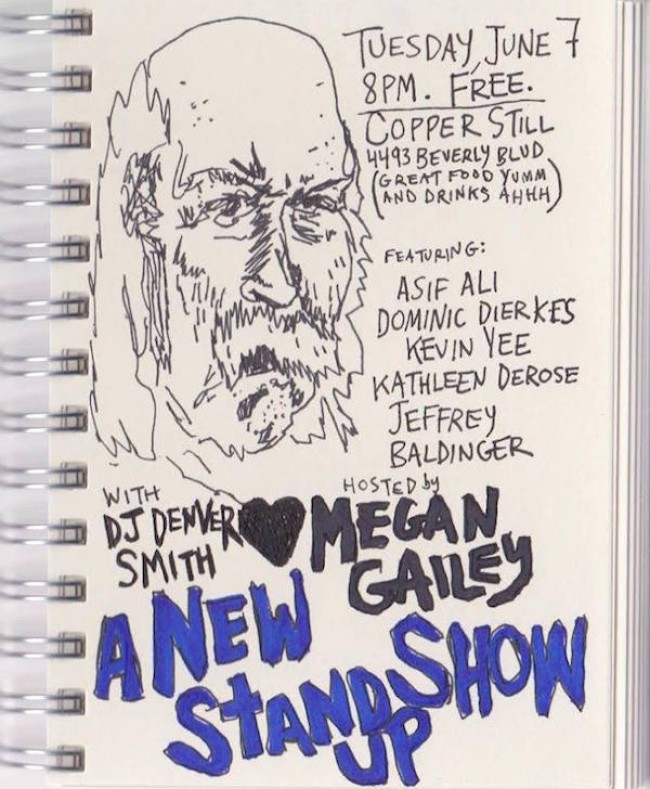 TUESDAY, JUNE 7
8PM. FREE.
COPPER STILL
4493 BEVERLY BLVD
(GREAT FOOD YUMM
AND DRINKS AHHH)
FEATURING:
ASIF ALI
DOMINIC DIERKES
KEVIN YEE
KATHLEEN DEROSE
JEFFREY
BALDINGER
WITH
DJ DENVER
SMITH
HOSTED by
MEGAN
GAILEY
A NEW
STAND UP
SHOW